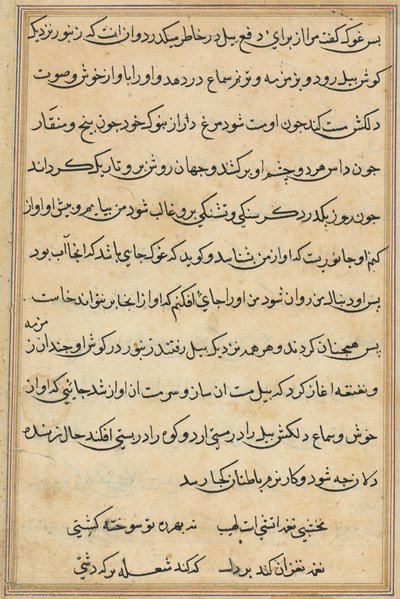 بس غوک گفت مرا از برای دفع پیل در خاطر میگذرد و ان انست که زنبور نزدیک
گوش پیل رود و بزمزمه و ترنم سماع در دهد و او را باواز خوش و صوت
دلکش مست کند چون او مست شود مرغ دراز نوک خود چون سیخ و منقار
چون داس هر دو چشم او برکشد و جهان روشن برو تاریک گرداند
چون روز بگذرد گرسنگی و تشنگی برو غالب شود من بیایم و پیش او اواز
کنم او جانوریست که اواز من شناسد و گوید که غوک جای باشد که انجا اب بود
پس او دنباله من روان شود من او را جای افکنم که او از انجا بر نتواند خاست
پس همچنان کردند و هر همه نزدیک پیل رفتند زنبور در گوش او چندان زمزمه
و نغنغه اغاز کرد که پیل مست ان ساز و سرمست ان اواز شد جایی که اواز
خوش و سماع دلکش پیل را در مستی ارد و کوه را در پستی افکند حال زنده
دلان چه شود و کار نرم باطنان کجا رسد
نخشبی نغمه اتشی است لهیب نه بهرده تو سوخته کشتی
نغمه نغز ان کند بر دل که کند شعله بر که دشتی